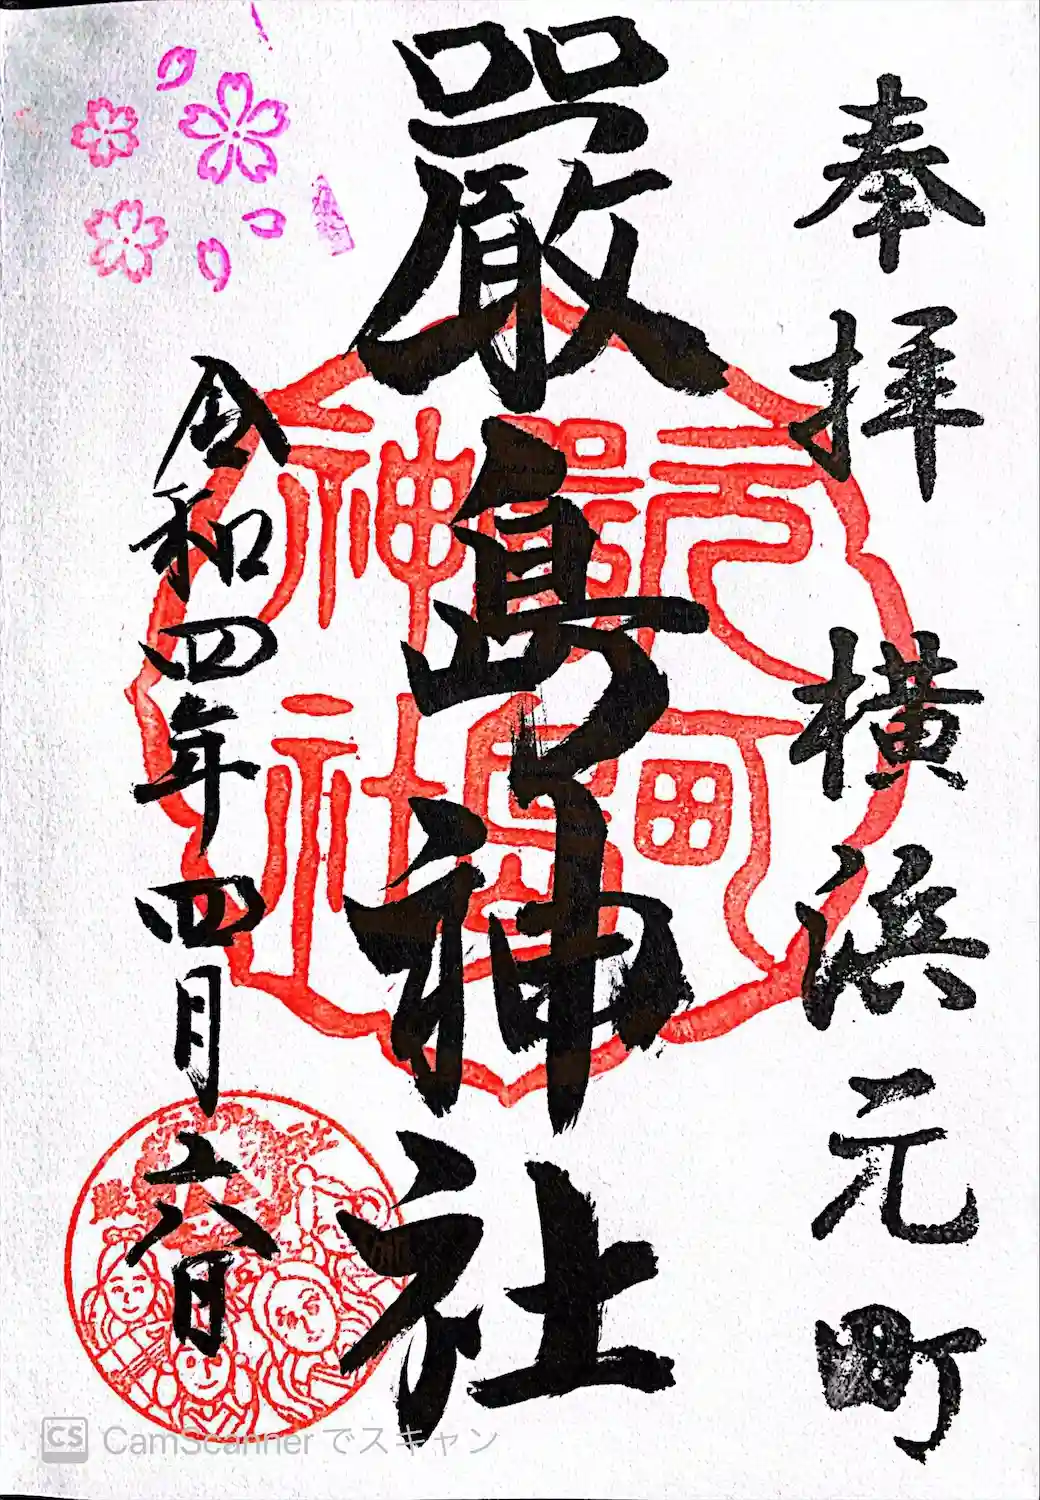 奉拝 横浜元町
嚴島神社
元町嚴島神社
令和四年四月六日
CS CamScannerでスキャン